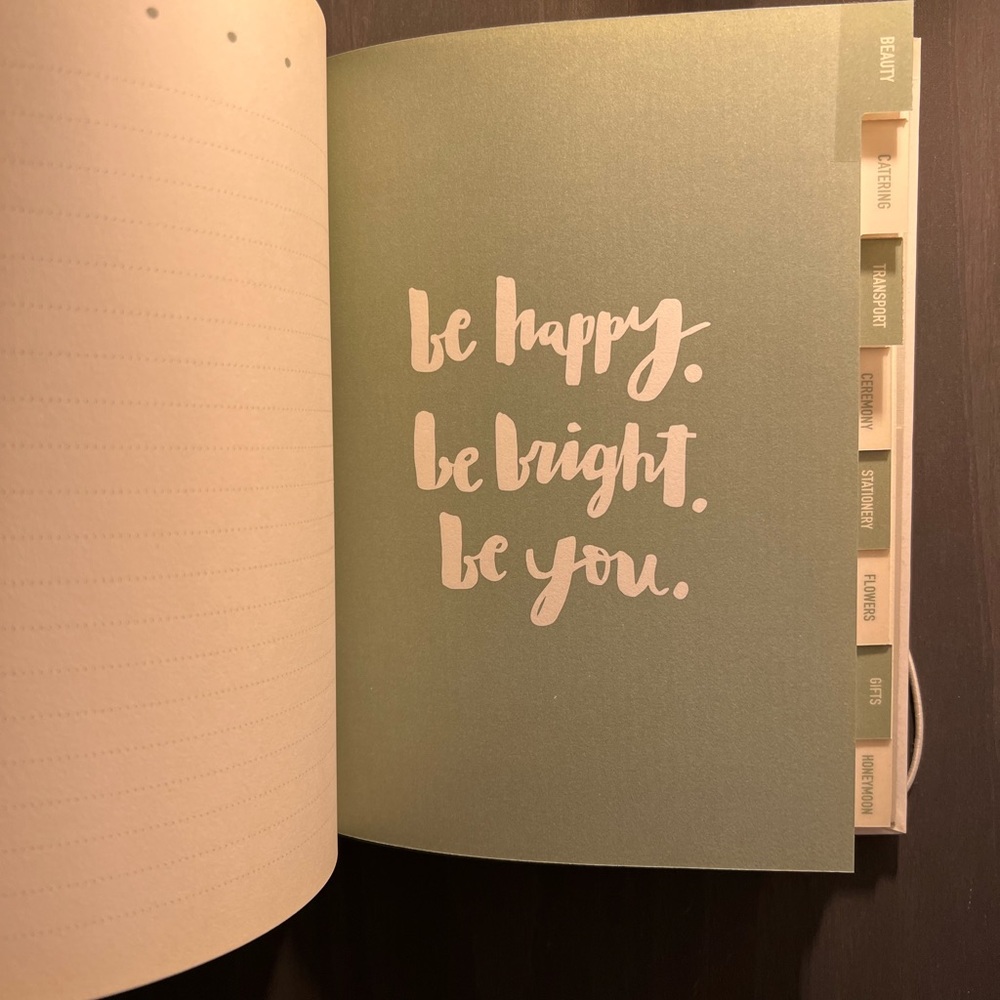 be happy.
be bright.
be you.
BEAUTY
CATERING
TRANSPORT
CEREMONY
STATIONERY
FLOWERS
GIFTS
HONEYMOON